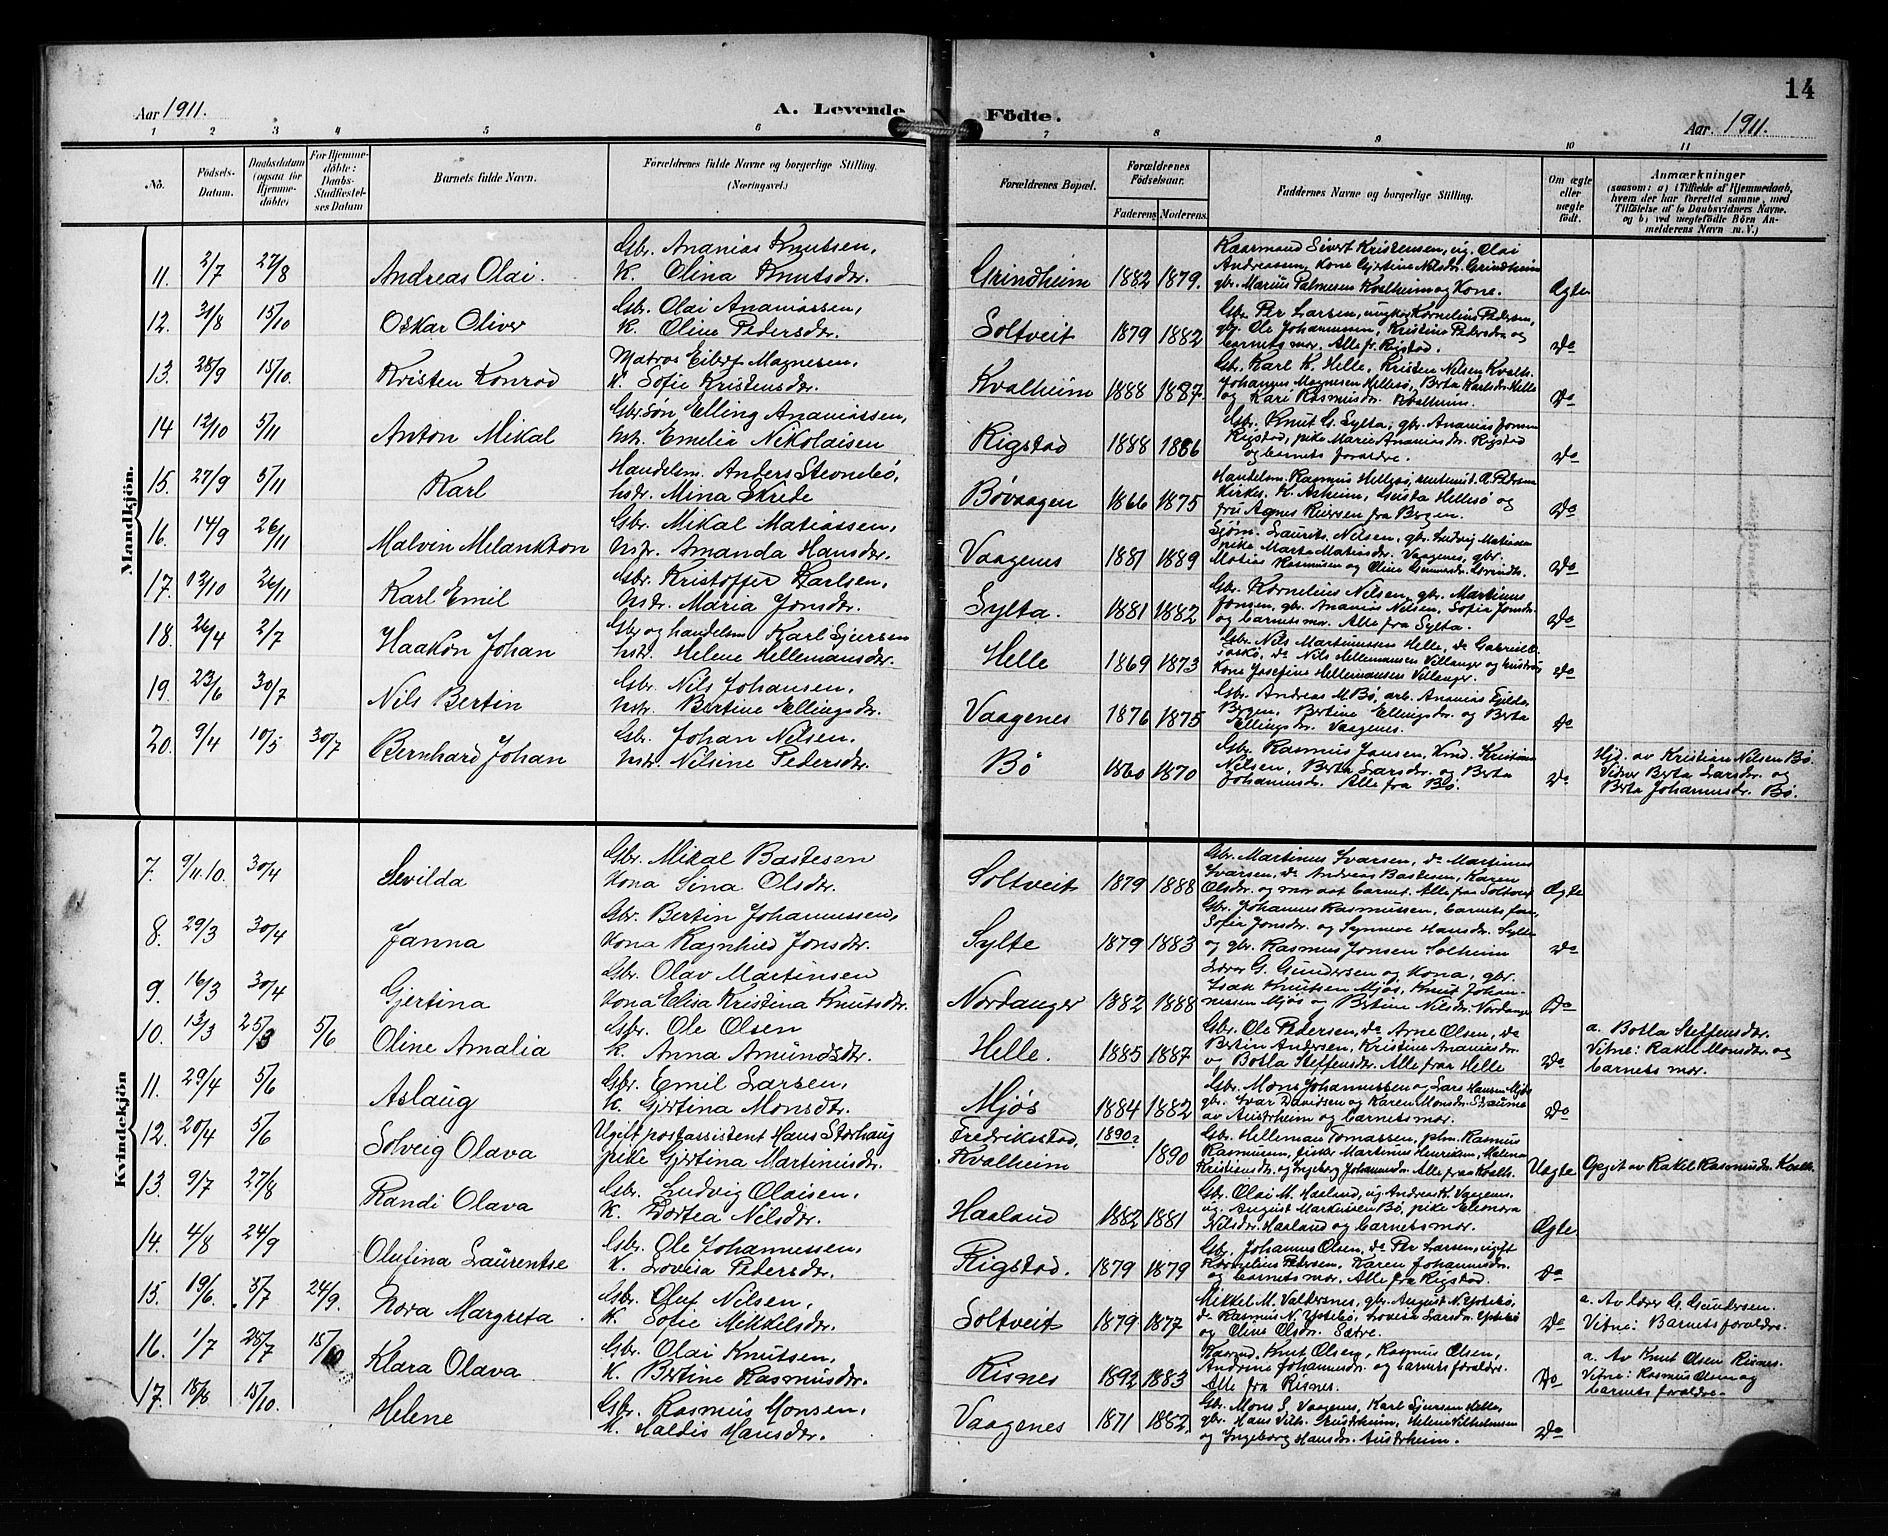 14
Aar 1911.
A. Levende Födte.
Aar 1911.
1 2 3 4 5 6 7 8 9 10 11
No.
Födsels-Datum.
Daabsdatum (ogsaa for Hjemmedöbte)
For Hjemmedöbte: Daabs-Stadfæstelses Datum
Barnets fulde Navn.
Forældrenes fulde Navne og borgerlige Stilling. (Næringsvei.)
Forældrenes Bopæl.
Forældrenes Födselsaar.
Faderens Moderens.
Faddernes Navne og borgerlige Stilling.
Om ægte eller uægte födt.
Anmærkninger
(saasom: a) i Tilfælde af Hjemmedaab, hvem der har forrettet samme, med Tilföielse af to Daabsvidners Navne, og b) ved uægtefödte Börn Anmelderens Navn m. V.)
Mandkjön.
11. 2/7 27/8 Andreas Olai. Gbr. Ananias Knutsen, K. Olina Knutsdr. Grindheim 1882 1879. Kaarmand Sivert Kristensen, ug. Olai Andreassen, Kone Gjertine Nilsdr. Grindheim gbr. Marius Palmesen Kvalheim og Kone. Ægte
12. 31/8 15/10 Oskar Oliver Gbr. Olai Ananiassen, K. Oline Pedersdr. Soltveit 1879 1882 Gbr. Per Larsen, ungkar Kornelius Pedersen, gbr. Ole Johannesen, Kristine Pedersdr. og barnets mor. Alle fr. Rigstad. Do
13. 28/9 15/10. Kristen Konrad Matros Eilert Magnesen, K. Sofie Kristensdr. Kvalheim 1888 1887 Gb. Karl K. Helle, Kristen Nilsen Kvalh. Johannes Magnesen Hellesø, Berta Karlsdr. Helle og Kari Rasmusdr. Kvalheim. Do
14 12/10 5/11 Anton Mikal Gbr. søn Elling Ananiassen, hstr. Emelia Nikolaisen Rigstad 1888 1886 Gbr. Knut G. Sylta, gbr. Ananias Jonsen Rigstad, pike Marie Ananiasdr. Rigstad og barnets forældre. Do
15. 27/9 5/11 Karl Handelsm. Anders Steonebø, hstr. Mina Skrede Bøvaagen 1866 1875 Handelsm. Rasmus Hellesø, A. Pedersen Kirkev. K. Askeim, Gusta Hellesø og fru Agnes Iversen fra Bergen. Do
16. 14/9 26/11 Malvin Melankton Gbr. Mikal Matiassen, hstr. Amanda Hansdr. Vaagenes 1881 1889 Sjøm. Laurits Nilsen, gbr. Ludvig Matiassen pike Marta Matiasdr. Vaagenes, gbr. Matias Rasmussen og Oline Do
17. 12/10 26/11 Karl Emil Gbr. Kristoffer Karlsen, hstr. Maria Jonsdr. Sylta. 1881 1882 Gbr. Kornelius Nilsen, gbr. Martinus Jonsen, gbr. Ananias Nilsen, Sofia Jonsdr. og barnets mor. Alle fra Sylta. Do
18. 26/4 2/7 Haakon Johan Gbr og handelsm Karl Sjursen hstr. Helene Hellemansdr. Helle 1869 1873 Gbr. Nils Martinussen Helle, do Gabriel Toskø, do Nils Hellemansen Villanger og hustrus Kone Josefine Hellemansen Villanger. Do
19. 23/6 30/7 Nils Bertin Gbr. Nils Johansen, hstr. Bertine Ellingsdr. Vaagenes 1876 1875 Gbr. Andreas M. Bø, arb. Ananias Bergen, Bertine Ellingsdr. og Berta Ellingsdr. Vaagenes. Do
20. 9/4 10/5 30/7 Bernhard Johan Gbr. Johan Nilsen. hstr. Nilsine Pedersdr. Bø 1860 1870 Gbr. Rasmus Jansen, Kristian Nilsen, Berta Larsdr. og Berta Johannesdr. Alle fra Bø. Do Hjd. av Kristian Nilsen Bø. Vidner Berta Larsdr. og Berta Johannesdr. Bø.
Kvindekjön
7. 9/11.10. 30/4 Sevilda Gbr. Mikal Bastesen Kona Sina Olsdr. Soltveit 1879 1888 Gbr. Martinus Ivarsen, do Martinus Ivarsen, do Andreas Bastesen, Karen Olsdr. og mor aat barnet. Alle fra Soltveit Ægte
8. 29/3 30/4 Janna Gbr. Bertin Johannessen, Kona Ragnhild Jonsdr. Sylte 1879 1883 Gbr. Johannes Rasmussen, barnets far, Sofia Jonsdr. og Synneve Hansdr. Sylte og gbr. Rasmus Jonsen Solheim Do
9. 16/3 30/4 Gjertina Gbr. Olav Martinsen Kona Elisa Kristina Knutsdr. Nordanger 1882 1888 Lærer G. Gundersen og Kona, gbr. Isak Knutsen Mjøs, Knut Johannessen Mjøs og Bertine Nilsdr. Nordanger Do
10. 13/3 25/3 5/6 Oline Amalia Gbr. Ole Olsen K. Anna Amundsdr. Helle. 1885 1887 Gbr. Ole Pedersen, do Arne Olsen, do Bertin Andersen, Kristine Ananiasdr. og Botla Steffensdr. Alle fraa Helle Do a. Botla Steffensdr. Vitne: Rakel Monsdtr og barnets mor.
11. 29/4 5/6 Aslaug Gbr. Emil Larsen, K. Gjertina Monsdtr. Mjøs 1884 1882 Gbr. Mons Johannessen og Lars Hansen Mjøs gbr. Ivar Davidsen og Karen Monsdr. Straume av Austrheim og barnets mor. Do
12. 20/4 5/6 Solveig Olava Ugift postassistent Hans Storhaug pike Gjertina Martinusdr. Fredriksstad, Kvalheim 1890? 1890 Gbr. Helleman Tomassen, plm. Rasmus Rasmussen, fisker Martines Henriksen, Malena Kristensdr. og Ingeborg Johannesdr. Alle fraa Kvalh. Uægte Opgit av Rakel Rasmusdr. Kvalh.
13. 9/7 27/8 Randi Olava Gbr. Ludvig Olaisen, K. Dortea Nilsdr. Haaland 1882 1881 Gbr. Olai M. Haaland, ug. Andreas K. Vaagenes, ug. August Markussen Bø, pike Eleonora Nilsdr. Haaland og barnets mor. Ægte
14. 4/8 24/9 Olufina Laurentse Gbr. Ole Johannessen, K. Lovisa Pedersdr. Rigstad. 1879 1879 Gbr. Johannes Olsen, do Per Larsen, ugift Kornelius Petersen, Karen Johannesdr. og barnets mor. Alle fra Rigstad. Do
15. 19/6. 3/7 24/9. Nora Margreta Gbr. Oluf Nilsen, K. Sofie Mikkelsdr. Soltveit 1879 1877 Mikkel M. Valdersnes, gbr. August N. Ypsøbø, do Rasmus N. Ypsøbø, Lovisa Larsdr. Ypsøbø og Oline Olsdr. Sætre. Do a. Av lærer G. Gundersen. Vitne: Barnets forældre.
16. 1/7 25/7 15/10 Klara Olava Gbr. Olai Knutsen, K. Bertine Rasmusdr. Risnes 1892 1883 Knut Olsen, Rasmus Olsen, Andrine Johannesdr. og barnets forældre. Alle fra Risnes. Do a. Av Knut Olsen Risnes. Vitne: Rasmus Olsen og barnets forældre.
17. 18/8. 15/10. Helene Gbr. Rasmus Monsen, K. Haldis Hansdr. Vaagenes 1871 1882. Gbr. Mons S. Vaagenes, Karl Sjursen Helle, gbr. Hans Vilh. Austrheim, Helene Vilhelmsen og Ingeborg Hansdr. Austrheim. Do